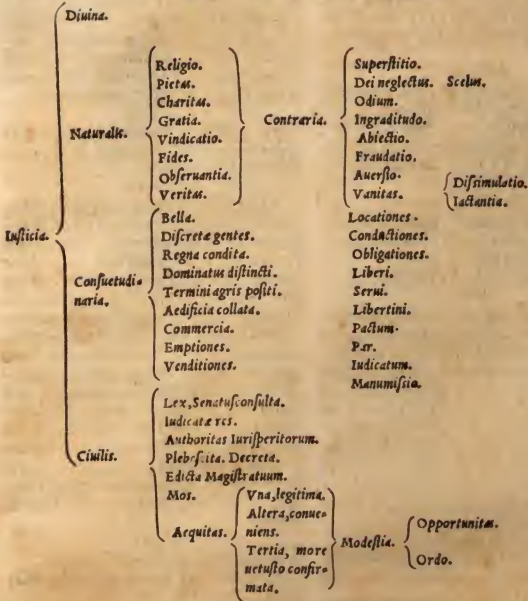 Diuina.
Religio.
Pietas.
Charitas.
Gratia.
Vindicatio.
Fides.
Obseruantia.
Veritas.
Naturalis.
Contraria.
Superstitio.
Dei neglectus. Scelus.
Odium.
Ingraditudo.
Abiectio.
Fraudatio.
Auersio.
Vanitas.
Dissimulatio.
Iactantia.
Iusticia.
Consuetudi-
naria.
Bella.
Discretæ gentes.
Regna condita.
Dominatus distincti.
Termini agris positi.
Aedificia collata.
Commercia.
Emptiones.
Venditiones.
Locationes.
Conductiones.
Obligationes.
Liberi.
Serui.
Libertini.
Pactum.
Par.
Iudicatum.
Manumissio.
Ciuilis.
Lex, Senatusconsulta.
Iudicatæ res.
Authoritas Iurisperitorum.
Plebescita. Decreta.
Edicta Magistratuum.
Mos.
Aequitas.
Vna, legitima.
Altera, conue-
niens.
Tertia, more
uetusto confir-
mata.
Modestia.
Opportunitas.
Ordo.